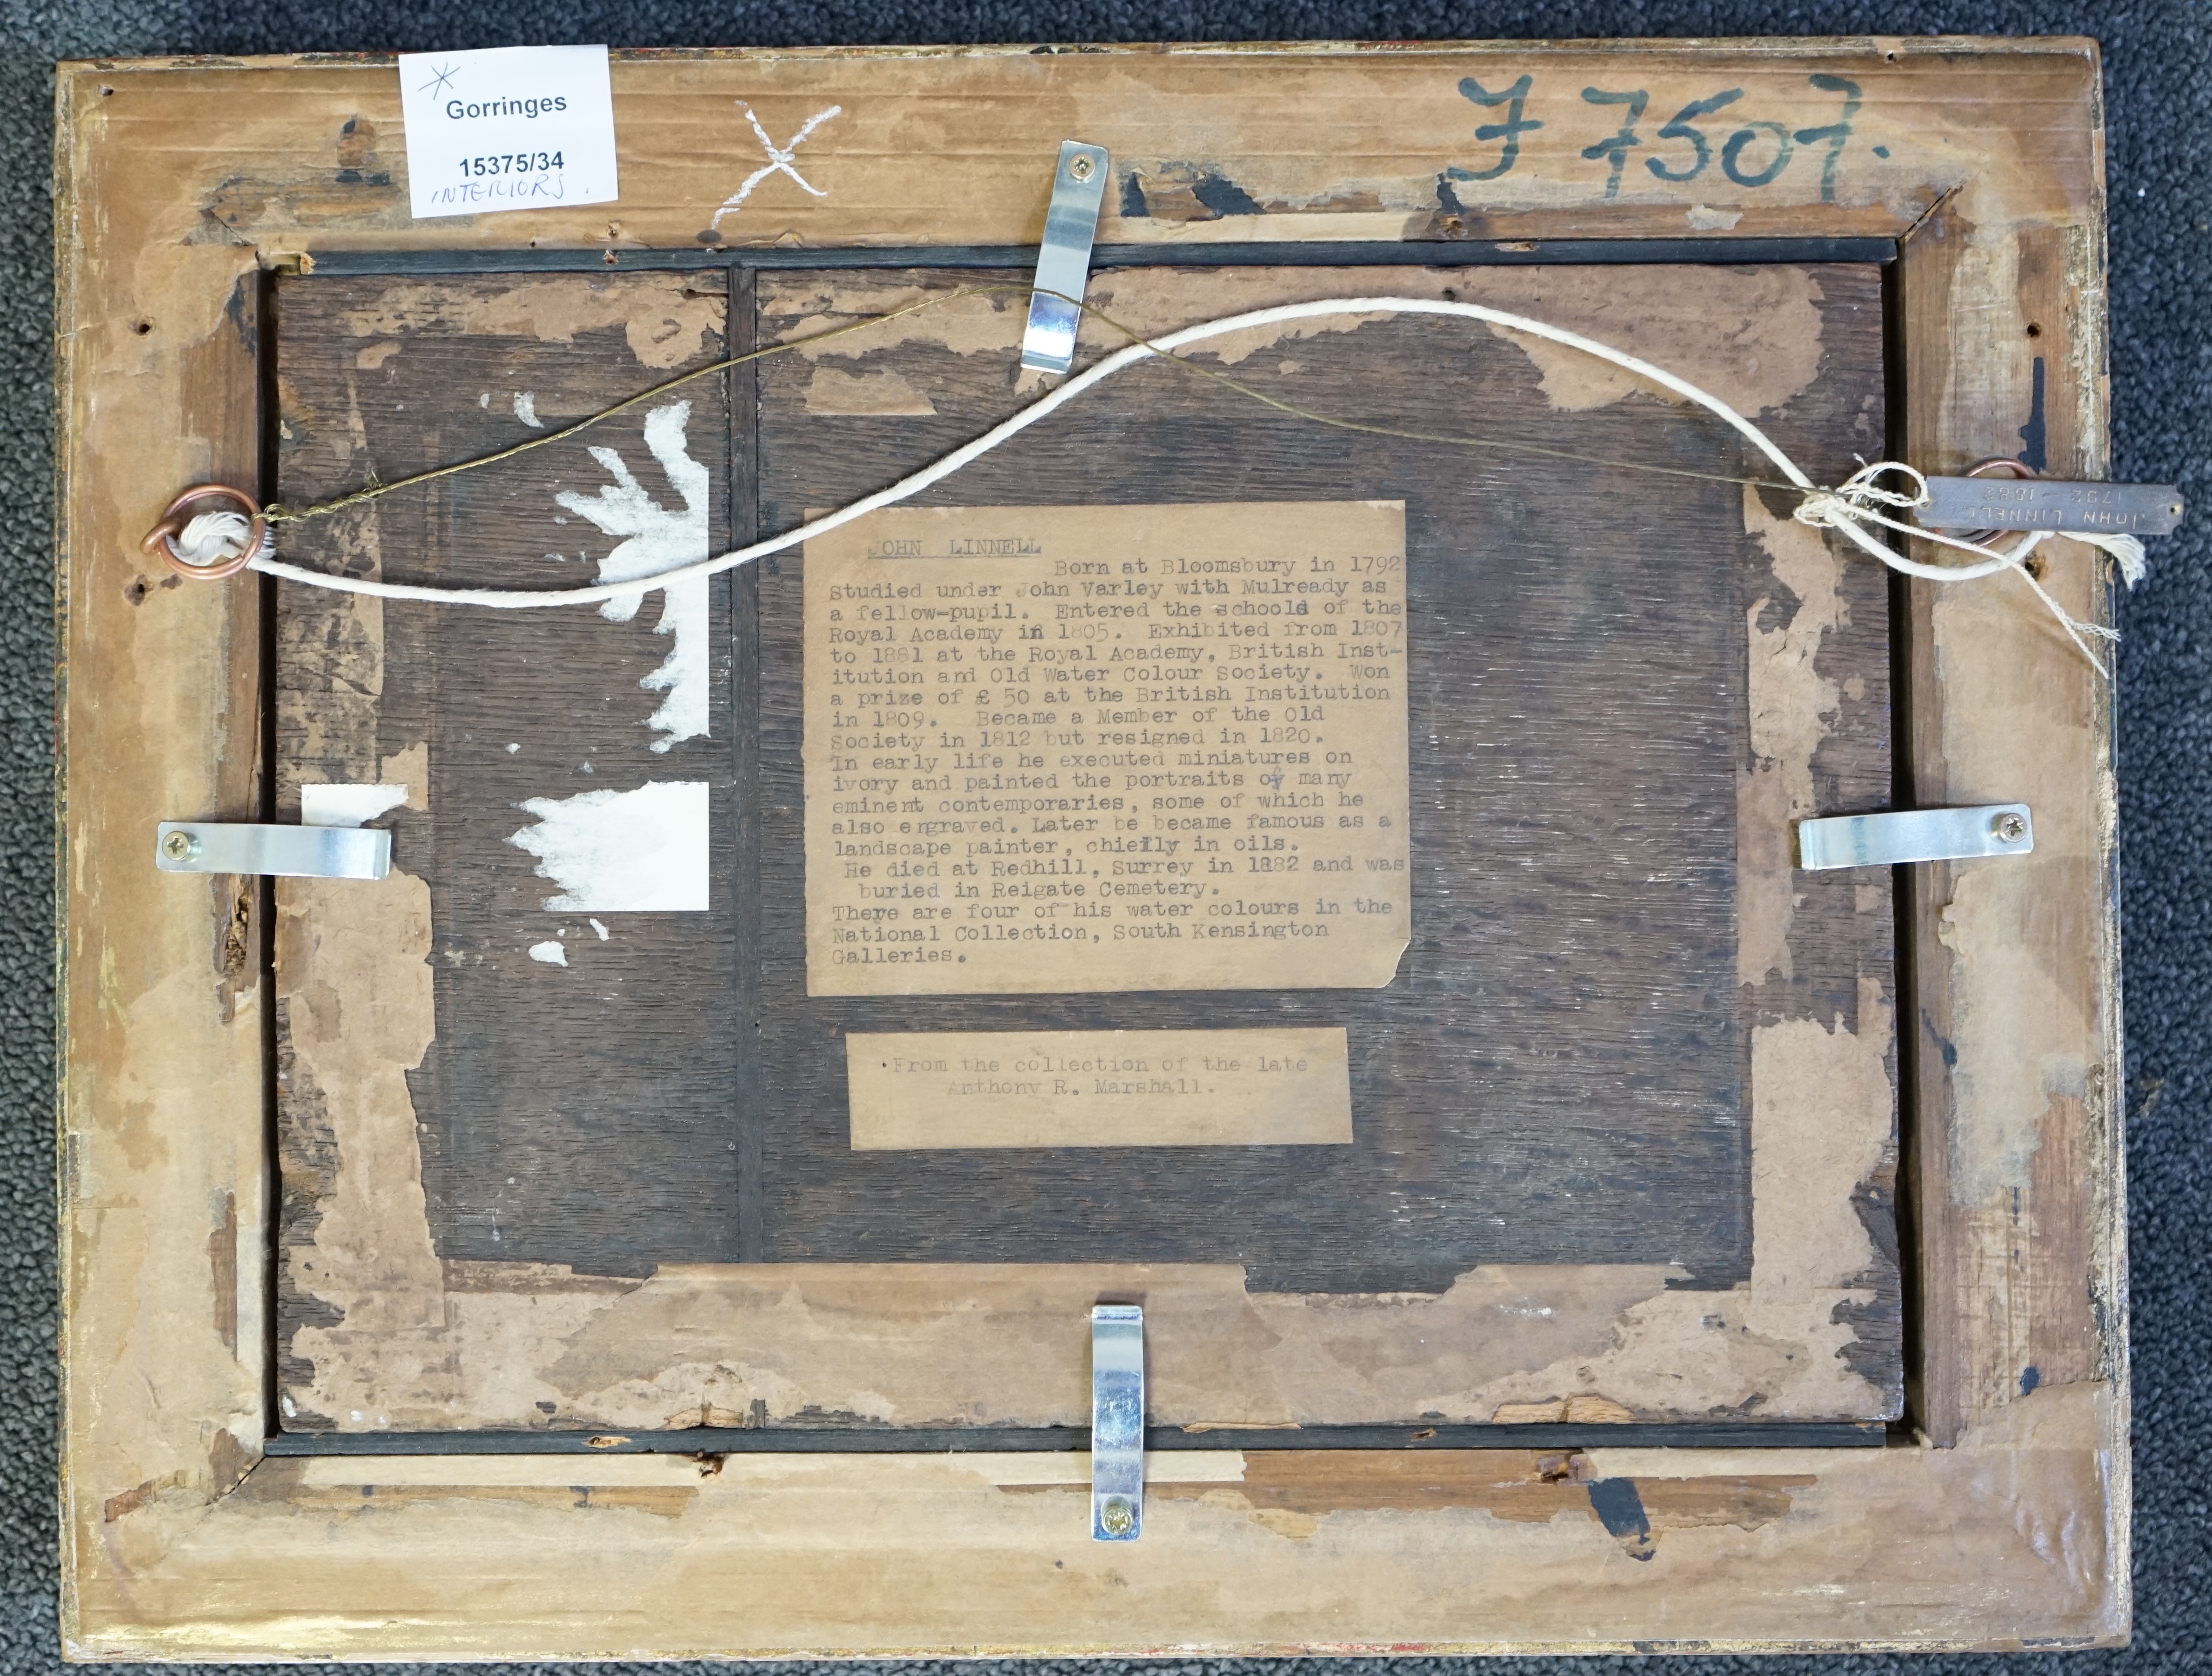 Gorringes
15375/34
INTERIORS.
J 7507.
JOHN LINNELL
1792-1882
JOHN LINNELL
Born at Bloomsbury in 1792
Studied under John Varley with Mulready as
a fellow-pupil. Entered the schools of the
Royal Academy in 1805. Exhibited from 1807
to 1881 at the Royal Academy, British Inst-
itution and Old Water Colour Society. Won
a prize of £ 50 at the British Institution
in 1809. Became a Member of the Old
Society in 1812 but resigned in 1820.
In early life he executed miniatures on
ivory and painted the portraits of many
eminent contemporaries, some of which he
also engraved. Later be became famous as a
landscape painter, chiefly in oils.
He died at Redhill, Surrey in 1882 and was
buried in Reigate Cemetery.
There are four of his water colours in the
National Collection, South Kensington
Galleries.
From the collection of the late
Anthony R. Marshall.